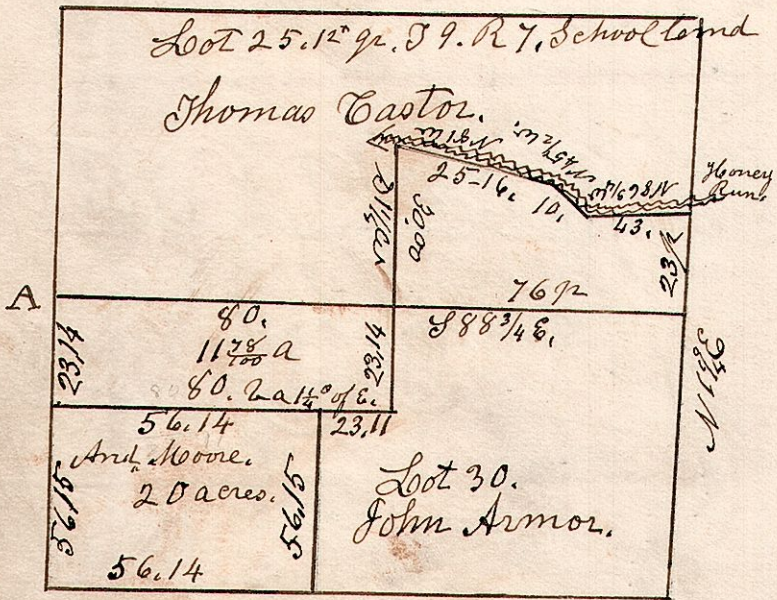 Lot 25. 12 qr. T 9. R 7. School land
Thomas Castor.
N 81 W.
N 45 1/2 W.
N 86 3/4 W.
Honey
Run.
25-16.
10.
43.
30,00
23
76 p
S 88 3/4 E.
A
80.
11 78/100 a
80. 1 1/4° of E.
23,14
23,14
56.14
23.11
And. Moore.
20 acres.
56,15
56,15
56.14
Lot 30.
John Armor.